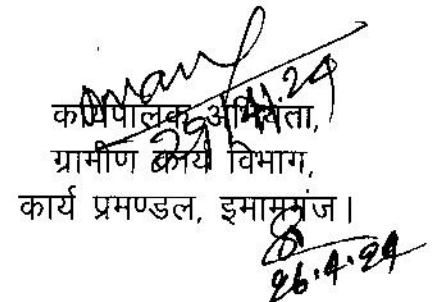 कार्यपालक अभियंता,
ग्रामीण कार्य विभाग,
कार्य प्रमण्डल, इमामगंज।
26.4.24